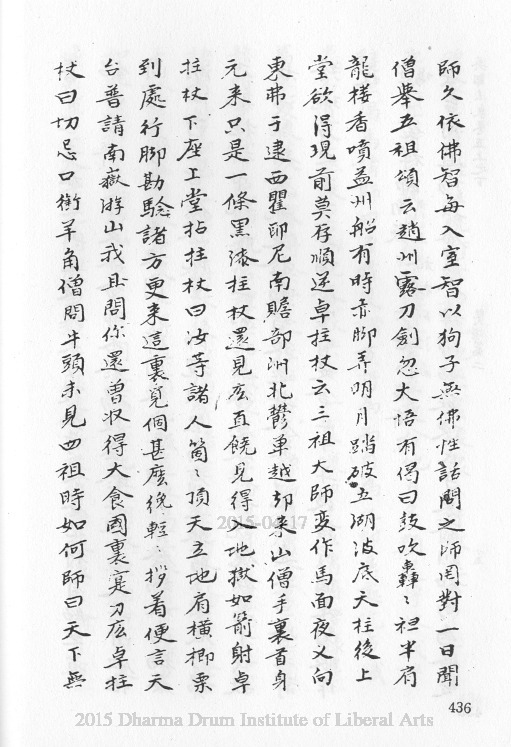 師久依佛智每入室智以狗子無佛性話問之師罔對一日聞
僧舉五祖頌云趙州露刀劍忽大悟有偈曰鼓吹轟〻袒半肩
龍楼香噴益州船有時赤脚弄明月踏破五湖波底天柱後上
堂欲得現前莫存順逆卓拄杖云三祖大師变作馬面夜叉向
東弗于逮西瞿耶尼南贍部洲北鬱单越却来山僧手裏首身
元来只是一條黑漆拄杖還見庅直饒見得入地獄如箭射卓
拄杖下座上堂拈拄杖曰汝等諸人箇〻頂天立地肩橫楖栗
到處行脚勘驗諸方更来這裏覓個甚麽纔輕〻拶着便言天
台普請南嶽游山我且問你還曽収得大食國裏寔刀庅卓拄
杖曰切忌口衔羊角僧問牛頭未見四祖時如何師曰天下無
436
2015-04-17
2015 Dharma Drum Institute of Liberal Arts